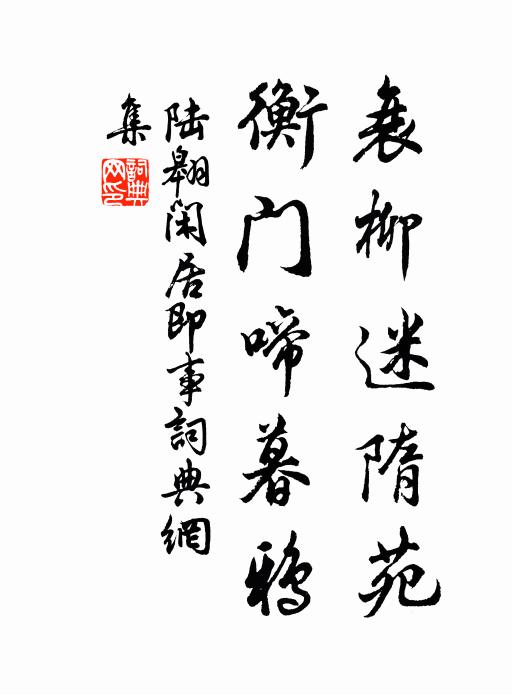 衰柳迷隋苑
衡门啼暮鸦
陆翱闲居即事詞典網
集
詞典
网印